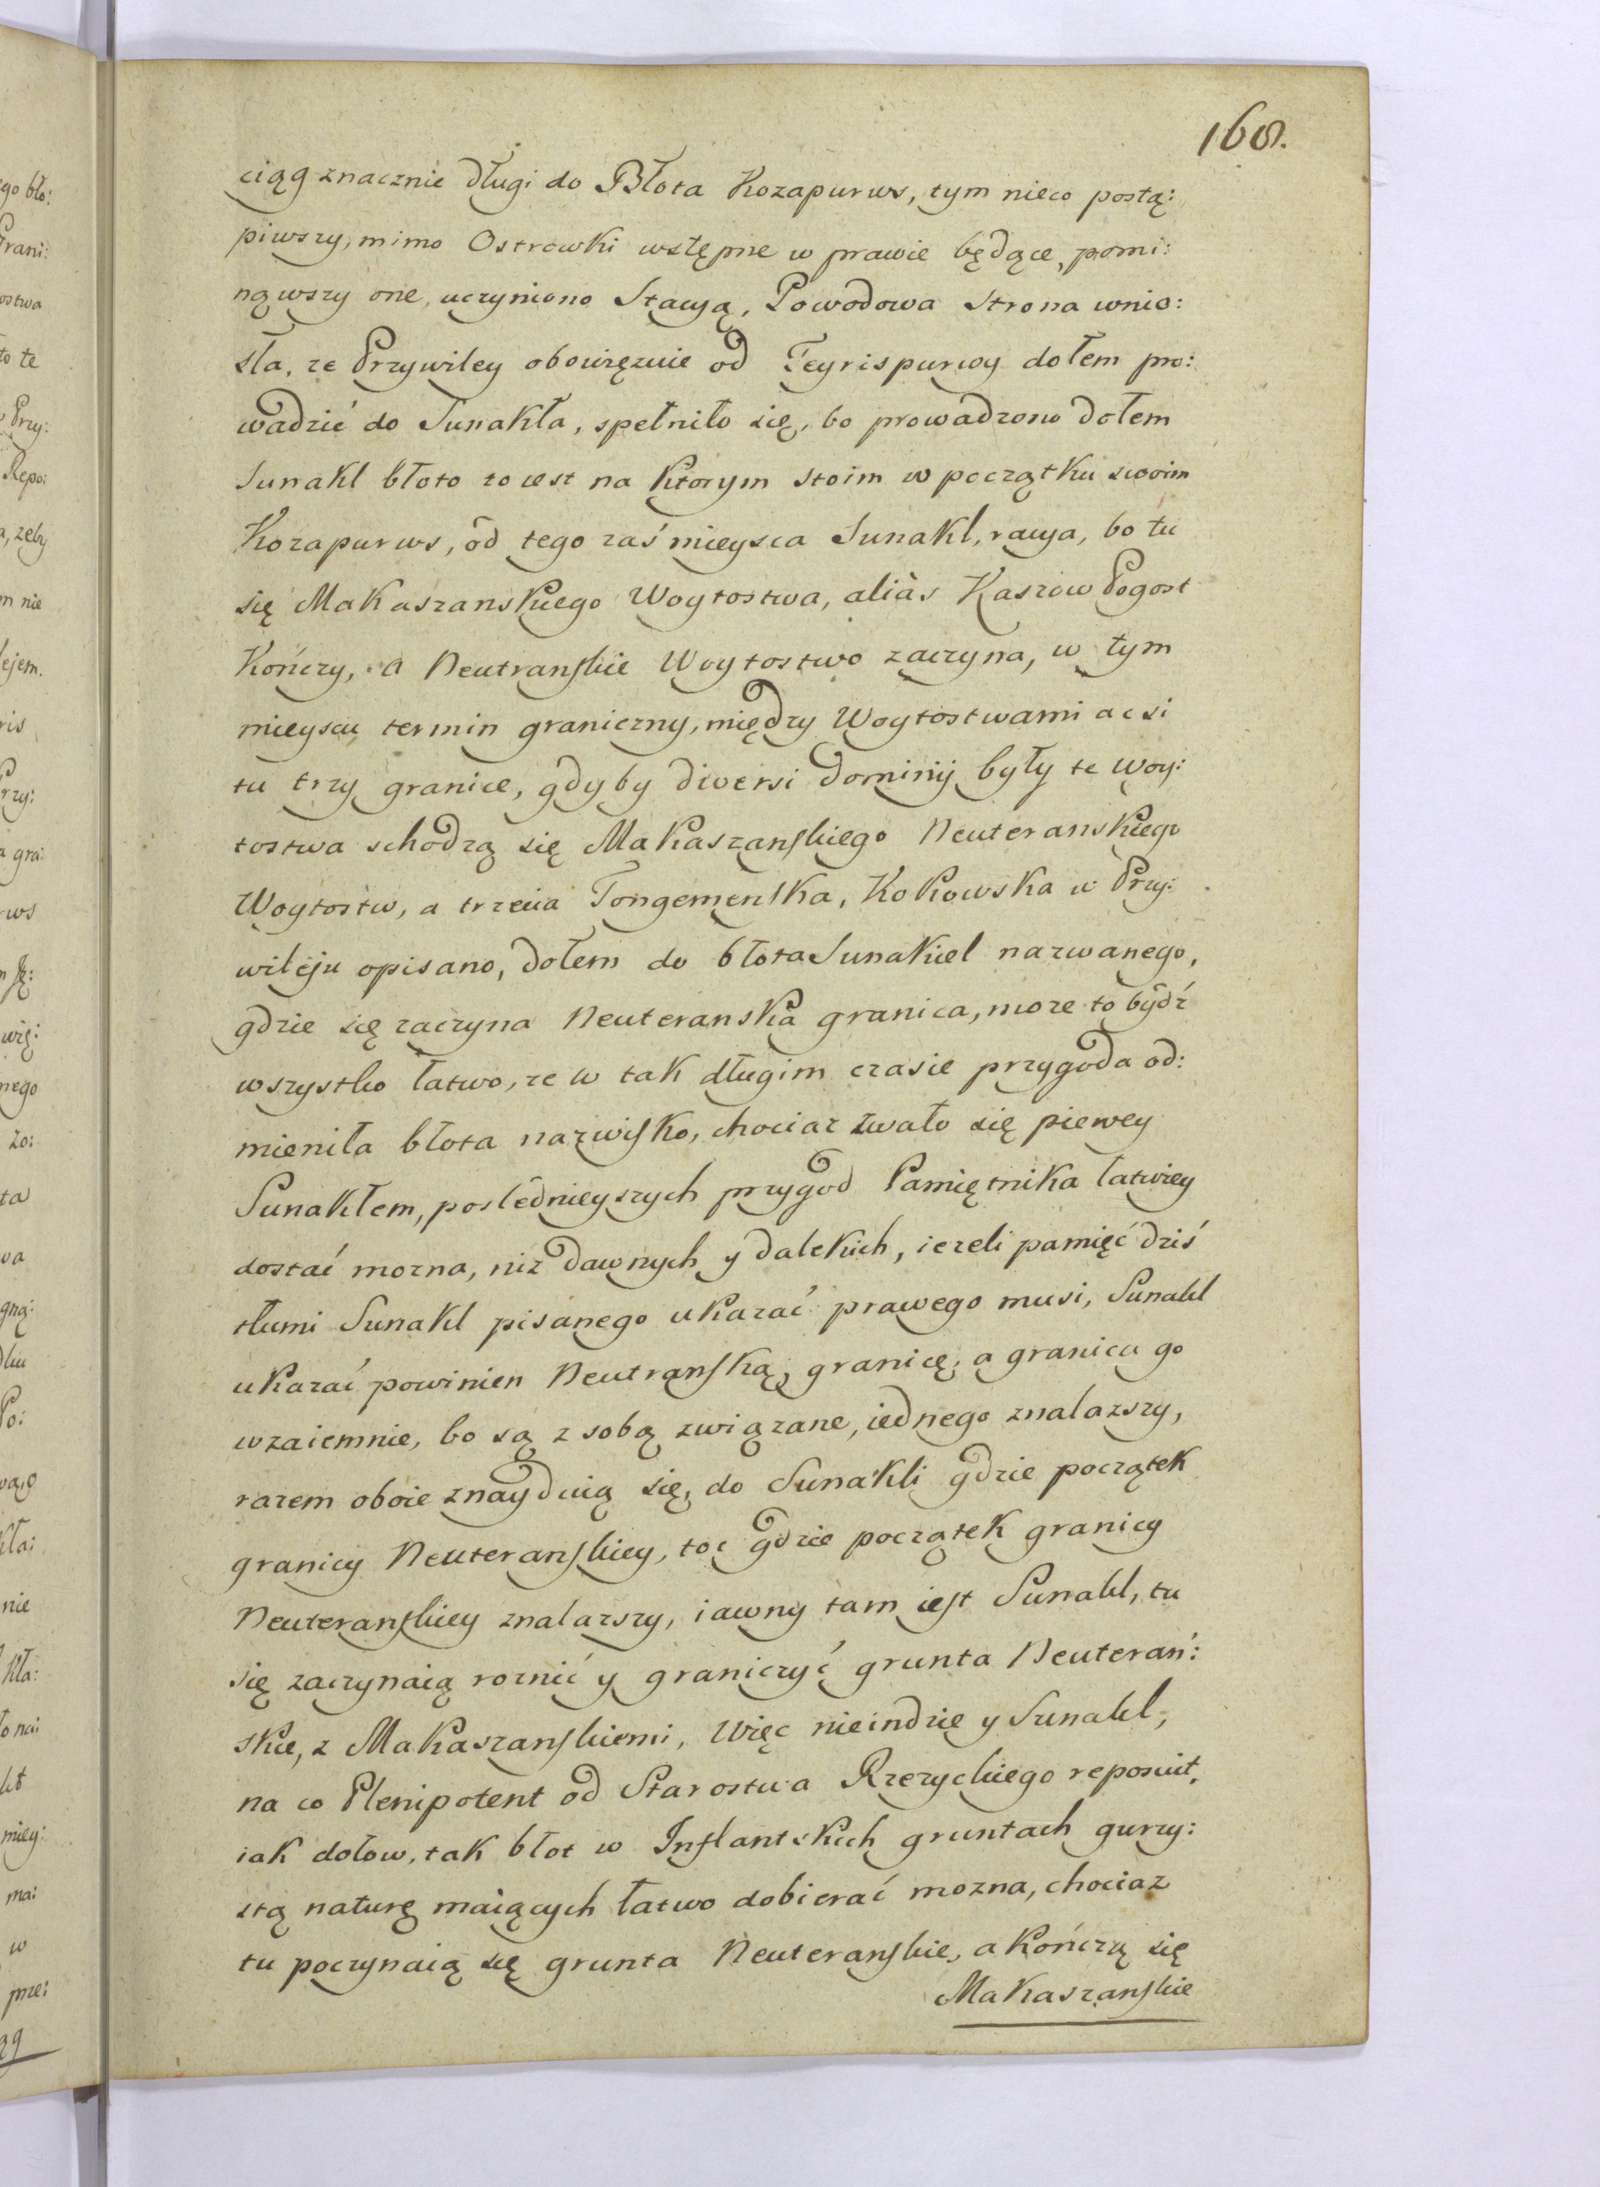 168.
ciąg znacznie długi do Błota Kozapurws, tym nieco postą:
piwszy, mimo Ostrowki wstępne w prawie będące, pomi:
nąwszy one, uczyniono Stacyą, Powodowa Strona wnio:
sła, ze Przywiley obowięzuie od Teyrispurwy dołem pro:
wadzić do Sunakła, spełniło się, bo prowadzono dołem
Sunakl błoto to iest na ktorym stoim w początku swoim
Kozapurws, od tego zaś mieysca Sunakl, racya, bo tu
się Makaszanskiego Woytostwa, aliàs Kaszow Pogost
Kończy, a Neutranskie Woytostwo zaczyna, w tym
mieyscu termin graniczny, między Woytostwami ac si
tu trzy granice, gdyby diversi dominij były te Woy:
tostwa schodzą się Makaszanskiego Neuteranskiego
Woytostw, a trzecia Tongemenska, Kokowska w Przy:
wileju opisano, dołem do błota Sunakiel nazwanego,
gdzie się zaczyna Neuteranska granica, moze to bydź
wszystko łatwo, ze w tak długim czasie przygoda od:
mieniła błota nazwisko, chociaz zwało się pierwey
Sunakłem, poslednieyszych przygod Pamiętnika łatwiey
dostać mozna, niz dawnych y dalekich, iezeli pamięć dziś
tłumi Sunakl pisanego ukazać prawego musi, Sunakl
ukazać powinien Neutranską granicę, a granica go
wzaiemnie, bo są z sobą związane, iednego znalazszy,
razem oboie znayduią się, do Sunakli gdzie początek
granicy Neuteranskiey, toć gdzie początek granicy
Neuteranskiey znalazszy, iawny tam iest Sunakl, tu
się zaczynaią roznić y graniczyć grunta Neuterań:
skie, z Makaszanskiemi, Więc nieindzie y Sunakl,
na co Plenipotent od Starostwa Rzezyckiego reposuit,
iak dołow, tak błot w Inflantskich gruntach gurzy:
stą naturę maiących łatwo dobierać mozna, chociaz
tu poczynaią się grunta Neuteranskie, a kończą się
Makaszanskie